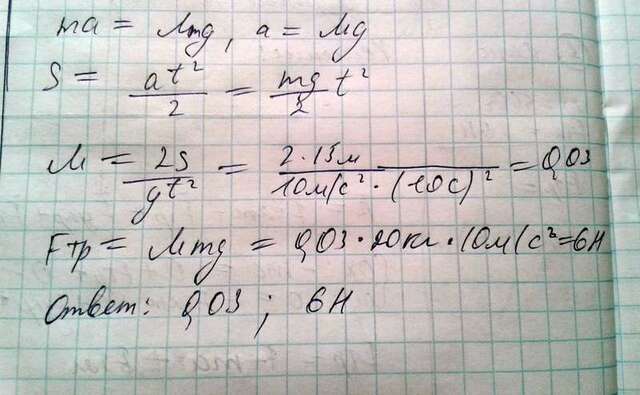 ma = μmg, a = μg
S = at²/2 = mg/2 t²
μ = 2S/gt² = 2·15м/10м/с²·(10с)² = 0,03
Fтр = μmg = 0,03·20кг·10м/с² = 6Н
Ответ: 0,03; 6Н